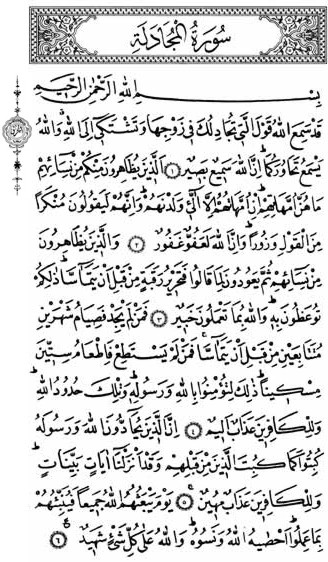 سُورَةُ الْمُجَادِلَةِ
بِسْمِ اللهِ الرَّحْمٰنِ الرَّحِيمِ
قَدْ سَمِعَ اللهُ قَوْلَ الَّتِي تُجَادِلُكَ فِي زَوْجِهَا وَتَشْتَكِي إِلَى اللهِ وَاللهُ
يَسْمَعُ تَحَاوُرَكُمَا إِنَّ اللهَ سَمِيعٌ بَصِيرٌ ١ اَلَّذِينَ يُظَاهِرُونَ مِنْكُمْ مِنْ نِسَائِهِمْ
مَا هُنَّ أُمَّهَاتِهِمْ إِنْ أُمَّهَاتُهُمْ إِلَّا الّٰئِي وَلَدْنَهُمْ وَإِنَّهُمْ لَيَقُولُونَ مُنْكَرًا
مِنَ الْقَوْلِ وَزُورًا وَإِنَّ اللهَ لَعَفُوٌّ غَفُورٌ ٢ وَالَّذِينَ يُظَاهِرُونَ
مِنْ نِسَائِهِمْ ثُمَّ يَعُودُونَ لِمَا قَالُوا فَتَحْرِيرُ رَقَبَةٍ مِنْ قَبْلِ أَنْ يَتَمَاسَّا ذٰلِكُمْ
تُوعَظُونَ بِهِ وَاللهُ بِمَا تَعْمَلُونَ خَبِيرٌ ٣ فَمَنْ لَمْ يَجِدْ فَصِيَامُ شَهْرَيْنِ
مُتَتَابِعَيْنِ مِنْ قَبْلِ أَنْ يَتَمَاسَّا فَمَنْ لَمْ يَسْتَطِعْ فَإِطْعَامُ سِتِّينَ
مِسْكِينًا ذٰلِكَ لِتُؤْمِنُوا بِاللهِ وَرَسُولِهِ وَتِلْكَ حُدُودُ اللهِ
وَلِلْكَافِرِينَ عَذَابٌ أَلِيمٌ ٤ إِنَّ الَّذِينَ يُحَادُّونَ اللهَ وَرَسُولَهُ
كُبِتُوا كَمَا كُبِتَ الَّذِينَ مِنْ قَبْلِهِمْ وَقَدْ أَنْزَلْنَا آيَاتٍ بَيِّنَاتٍ
وَلِلْكَافِرِينَ عَذَابٌ مُهِينٌ ٥ يَوْمَ يَبْعَثُهُمُ اللهُ جَمِيعًا فَيُنَبِّئُهُمْ
بِمَا عَمِلُوا أَحْصٰيهُ اللهُ وَنَسُوهُ وَاللهُ عَلَى كُلِّ شَيْءٍ شَهِيدٌ ٦